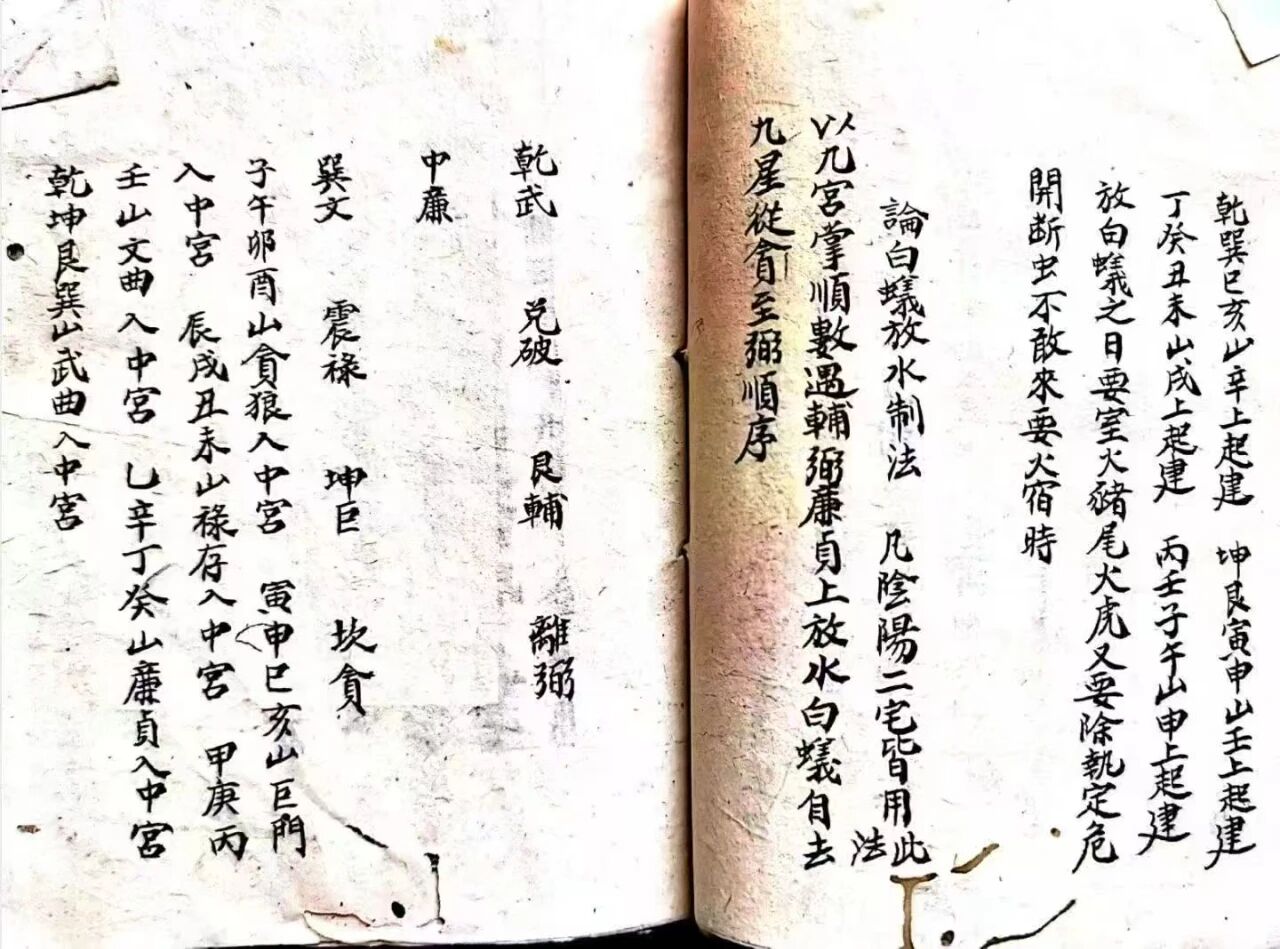 乾巽巳亥山辛上起建 坤艮寅申山壬上起建
丁癸丑未山戌上起建 丙壬子午山申上起建
放白蟻之日要室火豬尾火虎又要除執定危
開断虫不敢來要火宿時
論白蟻放水制法 凡陰陽二宅皆用此法
以九宮掌順數遇輔弼廉貞上放水白蟻自去
九星從貪至弼順序
乾武 兌破 艮輔 離弼
中廉
巽文 震祿 坤巨 坎貪
子午卯酉山貪狼入中宮 寅申巳亥山巨門
入中宮 辰戌丑未山祿存入中宮 甲庚丙
壬山文曲入中宮 乙辛丁癸山廉貞入中宮
乾坤艮巽山武曲入中宮